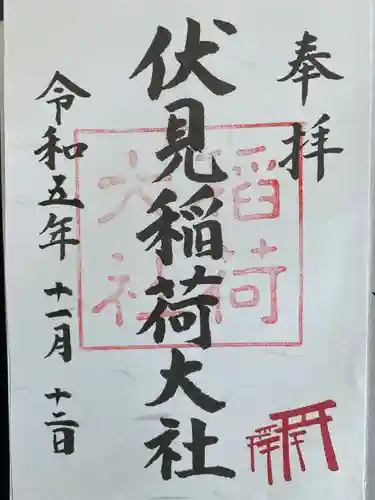 奉拝
伏見稲荷大社
稲荷
大社
令和五年十一月十二日